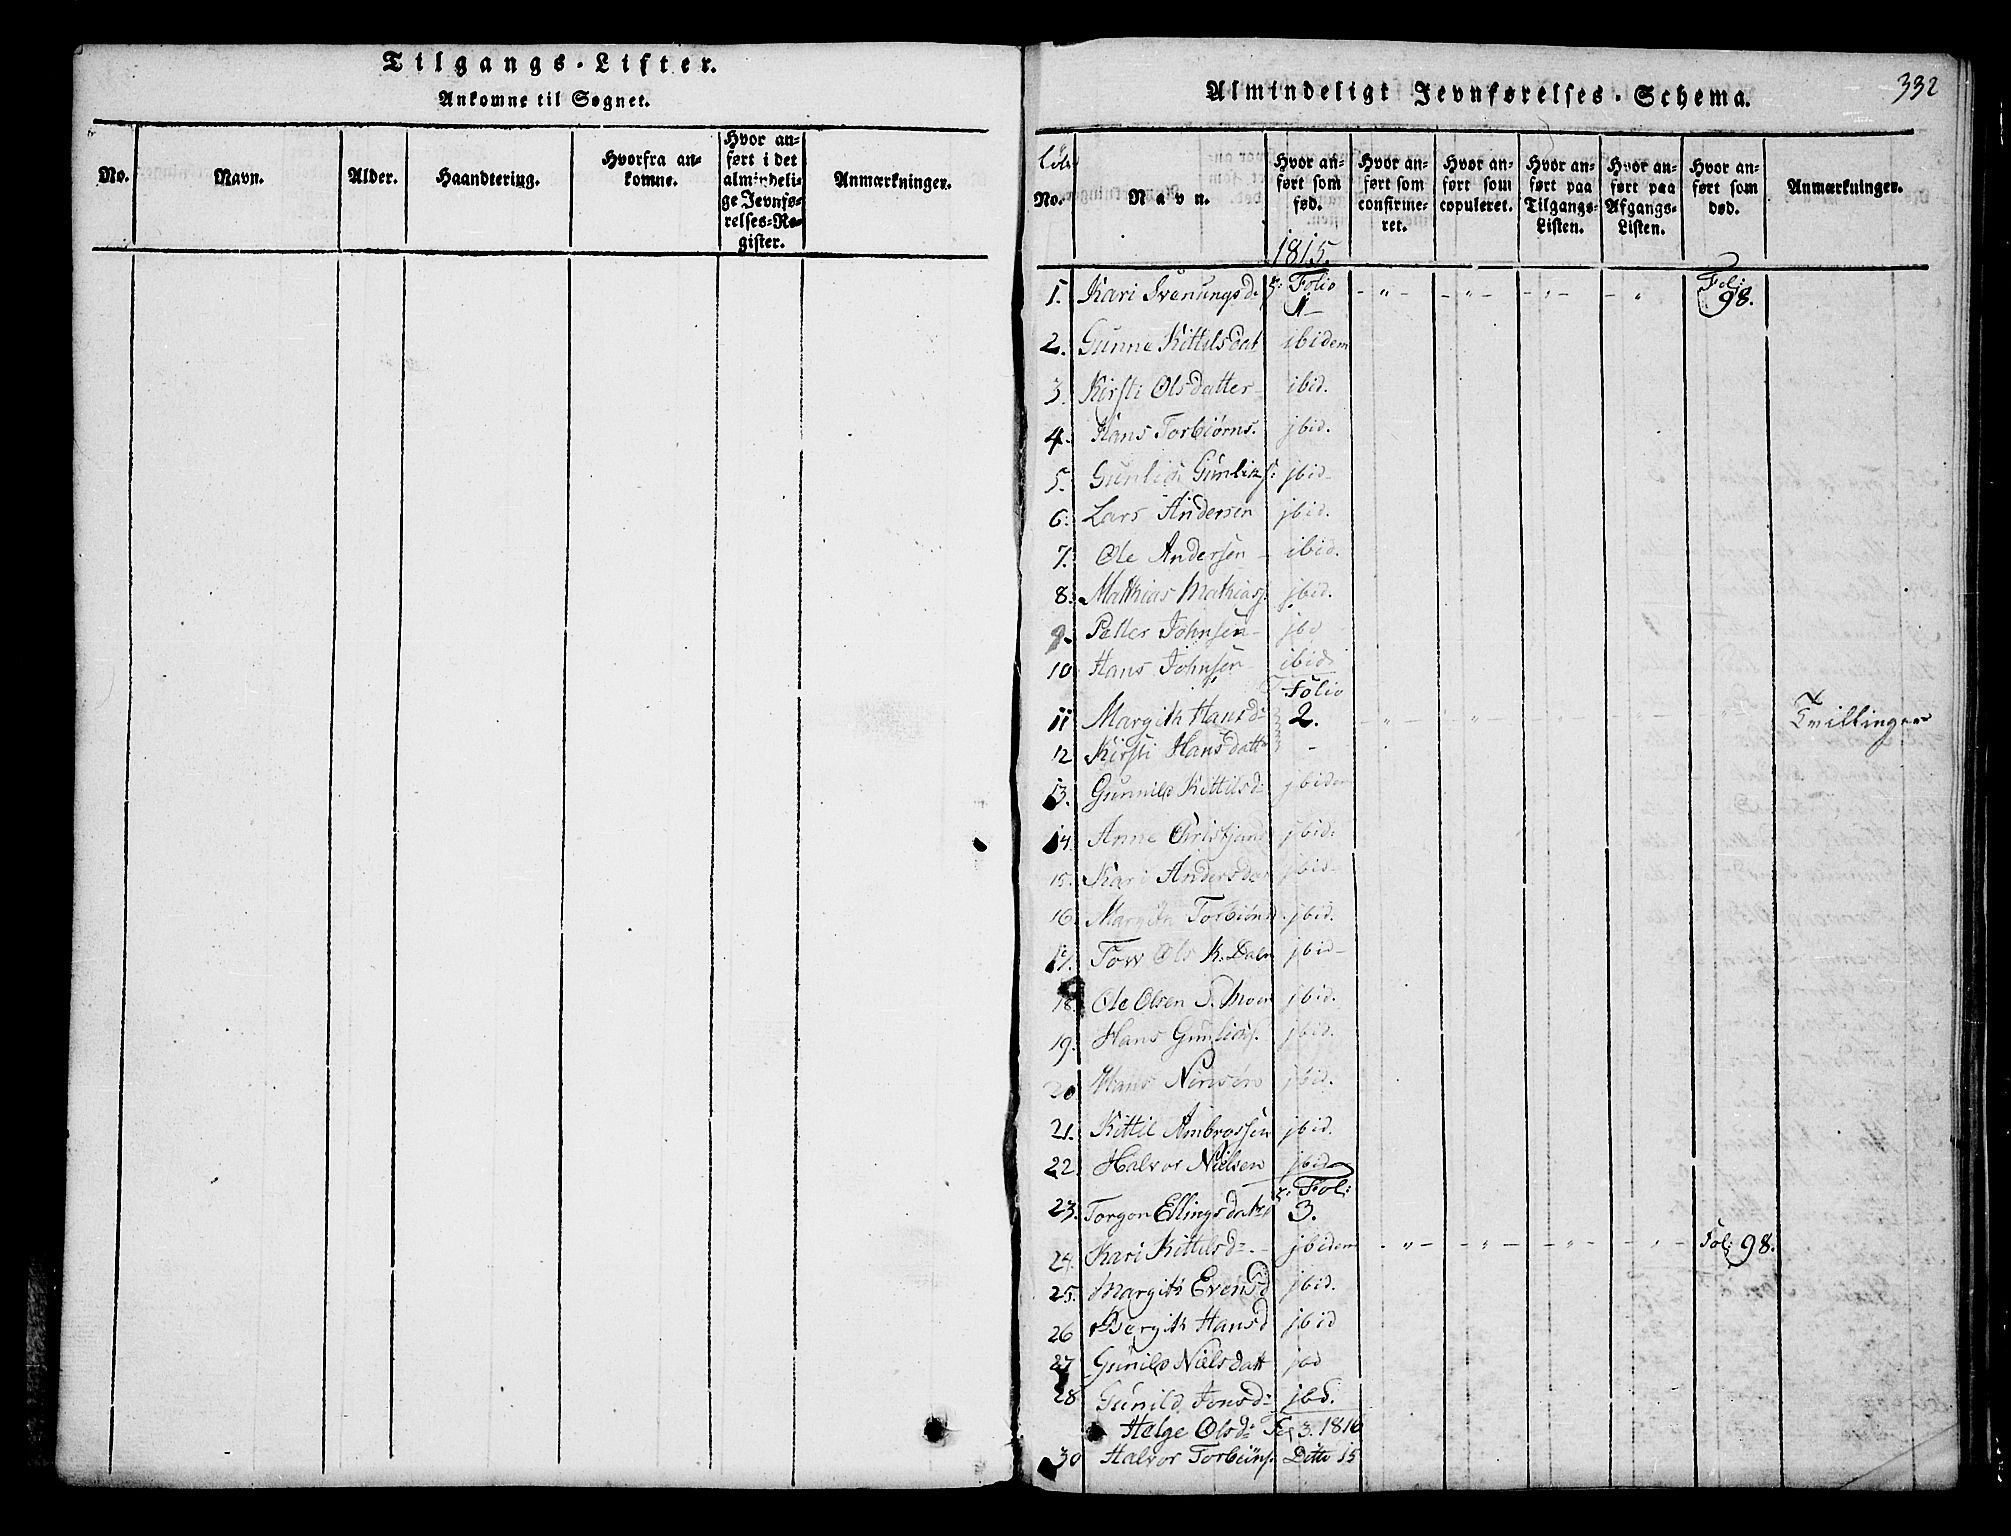 Tilgangs-Lister.
Ankomne til Sognet.
No.
Navn.
Alder.
Haandtering.
Hvorfra ankomne.
Hvor anført i det almindelige Jevnførelses-Register.
Anmærkninger.
332
Almindeligt Jevnførelses-Schema.
No.
Navn.
Hvor anført som fød.
Hvor anført som confirmeret.
Hvor anført som copuleret.
Hvor anført paa Tilgangs-Listen.
Hvor anført paa Afgangs-Listen.
Hvor anført som død.
Anmærkninger.
1815.
1. Kari Svenungsd. Folio 1 Fol: 98.
2. Gunne Kittilsdat ibidem
3. Kirsti Olsdatter ibid.
4. Hans Torbiørns. jbid.
5. Gunlich Gunlichs: jbid
6. Lars Andersen jbid.
7. Ole Andersen ibid.
8. Mathias Mathias. jbid.
9. Petter Johnsen
10 Hans Johnsen ibid
Folio
11 Margith Hansd: 2. Tvillinger
12 Kirsti Hansdatt
13. Gunnild Kittilsd: jbidem
14. Anne jbid:
15. Kari Andersdat jbid.
16. Margith jbid.
17. Tow Ols jbid
18 Ole Olsen jbid.
19. Hans jbid.
20 Hans jbid.
21. Kittil Ambrossen jbid.
22. Halvor Nielsen jbid
Fol:
23. Torgon Ellingsdatter 3.
24. Kari Kittilsd: jbidem Fol: 98.
25. Margith Evensd jbid.
26 Bergith Hansd jbid
27 Gunild Nielsdatt
28 Gunild Jonsd:
Helge Olsd: 3. 1816
30 Halvor Torbiins. Ditto 15